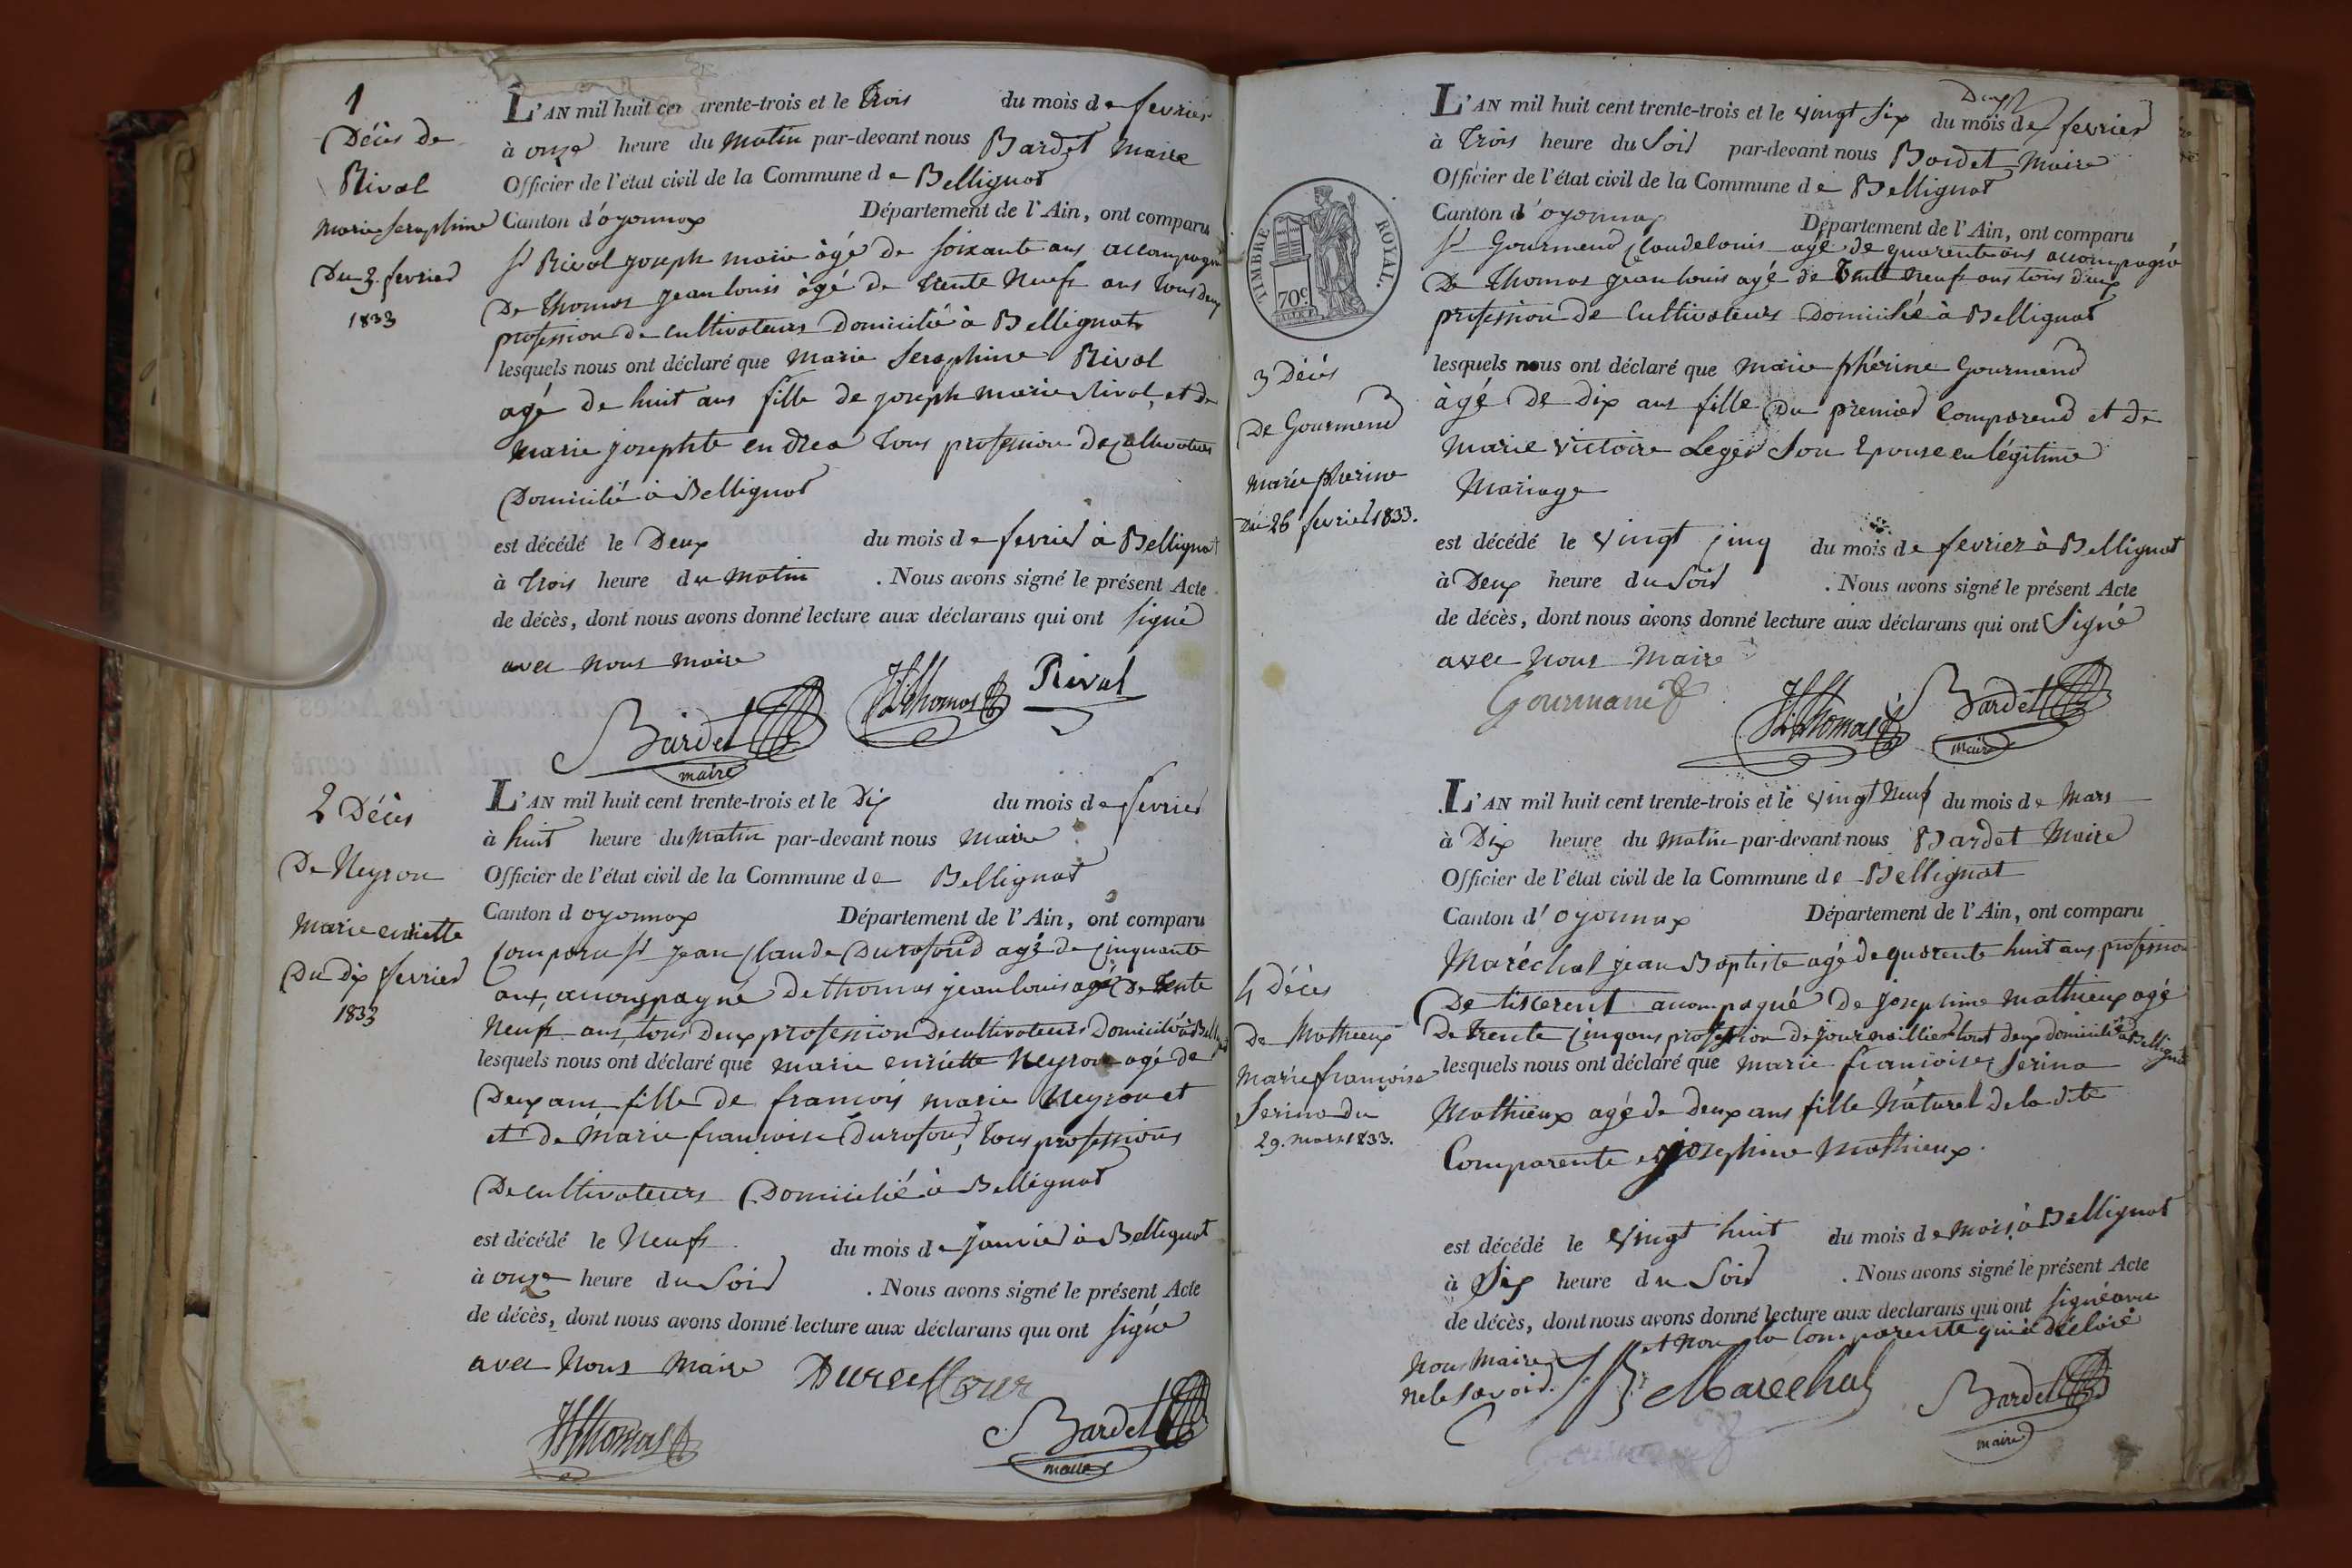 1
Décès de
Rival
Marie Seraphine
Du 3. fevrier
1833
L'AN mil huit cent trente-trois et le trois du mois de fevrier
à onze heure du matin par-devant nous Bardet Maire
Officier de l'état civil de la Commune de Bellignat
Canton d'oyonnax Département de l'Ain, ont comparu
sr Rival joseph marie âgé de soixante ans accompagné
De thomas jean louis âgé de trente neuf ans tous deux
profession de cultivateurs Domicilié à Bellignat
lesquels nous ont déclaré que marie Seraphine Rival
agé de huit ans fille de joseph marie Rival, et de
marie josephte tous profession de cultivateurs
Domicilié à Bellignat
est décédé le Deux du mois de fevrier à Bellignat
à trois heure du matin . Nous avons signé le présent Acte
de décès, dont nous avons donné lecture aux déclarans qui ont signé
avec nous maire
Bardet JLThomas Rival
maire
2 Décès
De Neyron
Marie enriette
Du dix fevrier
1833
L'AN mil huit cent trente-trois et le Dix du mois de fevrier
à huit heure du Matin par-devant nous Maire
Officier de l'état civil de la Commune de Bellignat
Canton d oyonnax Département de l'Ain, ont comparu
comparu sr jean Claude Durafourd agé de cinquante
ans, accompagné De thomas jean louis agé De trente
Neuf ans, tous deux profession de cultivateurs Domicilié à Bellignat
lesquels nous ont déclaré que marie enriette Neyron agé de
Deux ans fille de francois marie Neyron et
et de Marie francoise Durafourd, tous professions
De cultivateurs Domicilié à Bellignat
est décédé le Neuf du mois de janvier à Bellignat
à onze heure du Soir . Nous avons signé le présent Acte
de décès, dont nous avons donné lecture aux déclarans qui ont signé
avec Nous Maire
JLThomas Bardet
maire
TIMBRE ROYAL.
70c
3 Décès
De Gourmend
Marie phérine
Du 26 fevrier 1833.
Deux
L'AN mil huit cent trente-trois et le vingt six du mois de fevrier
à trois heure du Soir par-devant nous Bardet Maire
Officier de l'état civil de la Commune de Bellignat
Canton d'oyonnax Département de l'Ain, ont comparu
sr Gourmend Claude louis agé de quarente ans accompagné
De thomas jean louis agé de trente neuf ans tous deux
profession de Cultivateurs Domicilié à Bellignat
lesquels nous ont déclaré que Marie phérine Gourmend
âgé De Dix ans fille Du premier Comparend et de
Marie victoire Leger Son Epouse en légitime
Mariage
est décédé le vingt cinq du mois de fevrier à Bellignat
à Deux heure du Soir . Nous avons signé le présent Acte
de décès, dont nous avons donné lecture aux déclarans qui ont Signé
avec Nous Maire
Gourmand JLThomas Bardet
maire
4 Décès
De Mathieux
Marie françoise
Serina du
29. mars 1833.
L'AN mil huit cent trente-trois et le vingt Neuf du mois de Mars
à Dix heure du Matin par-devant nous Bardet Maire
Officier de l'état civil de la Commune de Bellignat
Canton d'oyonnax Département de l'Ain, ont comparu
Maréchal jean Baptiste agé de quarente huit ans profession
De tiscerent accompagné de josephine Mathieux agé
De trente cinq ans profession de journaillier tout deux domicilié à Bellignat
lesquels nous ont déclaré que marie francoise Serina
Mathieux agé de deux ans fille Náturel de la dite
Comparente josephine Mathieux.
est décédé le vingt huit du mois de Mars à Bellignat
à Six heure du Soir . Nous avons signé le présent Acte
de décès, dont nous avons donné lecture aux déclarans qui ont signé avec
Nous Maire et Non la Comparente qui a déclaré
ne le Savoir. JB Maréchal Bardet
maire